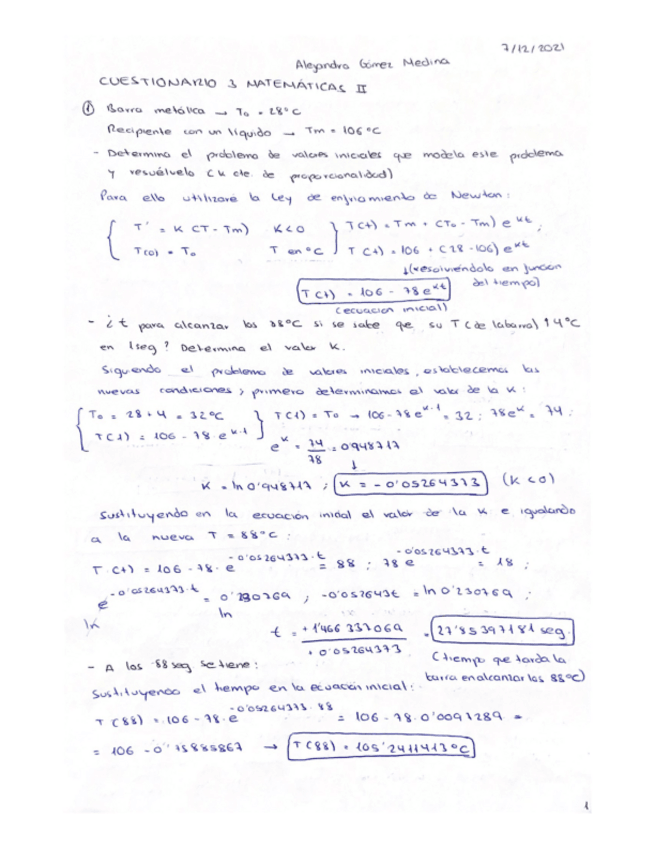 7/12/2021
Alejandro Gómez Medina
CUESTIONARIO 3 MATEMÁTICAS II
① Barra metálica → T₀ = 28°C
Recipiente con un líquido → Tm = 106°C
- Determina el problema de valores iniciales que modela este problema
y resuélvelo (K cte. de proporcionalidad)
Para ello utilizaré la Ley de enfriamiento de Newton:
T' = K (T - Tm) K<0 } T(t) = Tm + (T₀ - Tm) e^{Kt};
T(0) = T₀ T en °C } T(t) = 106 + (28 - 106) e^{Kt}
↓(resolviéndola en función
del tiempo)
T(t) = 106 - 78 e^{Kt}
(ecuación inicial)
- ¿t para alcanzar los 88°C si se sabe que su T (de la barra) ↑ 4°C
en 1seg? Determina el valor K.
Siguiendo el problema de valores iniciales, establecemos las
nuevas condiciones y primero determinamos el valor de la K:
{ T₀ = 28 + 4 = 32°C } T(1) = T₀ → 106 - 78 e^{K·1} = 32 ; 78 e^K = 74 ;
T(1) = 106 - 78 e^{K·1}
e^K = 74/78 = 0'948717
↓
K = ln 0'948717 ; K = - 0'05264373 (K<0)
Sustituyendo en la ecuación inicial el valor de la K e igualando
a la nueva T = 88°C:
T(t) = 106 - 78 · e^{-0'05264373·t} = 88 ; 78 e^{-0'05264373·t} = 18 ;
e^{-0'05264373·t} = 0'230769 ; -0'052643t = ln 0'230769 ;
ln ln
t = +1'466337069 / +0'05264373 = 27'85397181 seg.
(tiempo que tarda la
barra en alcanzar los 88°C)
- A los 88 seg se tiene:
Sustituyendo el tiempo en la ecuación inicial:
T(88) = 106 - 78 · e^{-0'05264373·88} = 106 - 78 · 0'0091289 =
= 106 - 0'75885867 → T(88) = 105'2411413°C
1